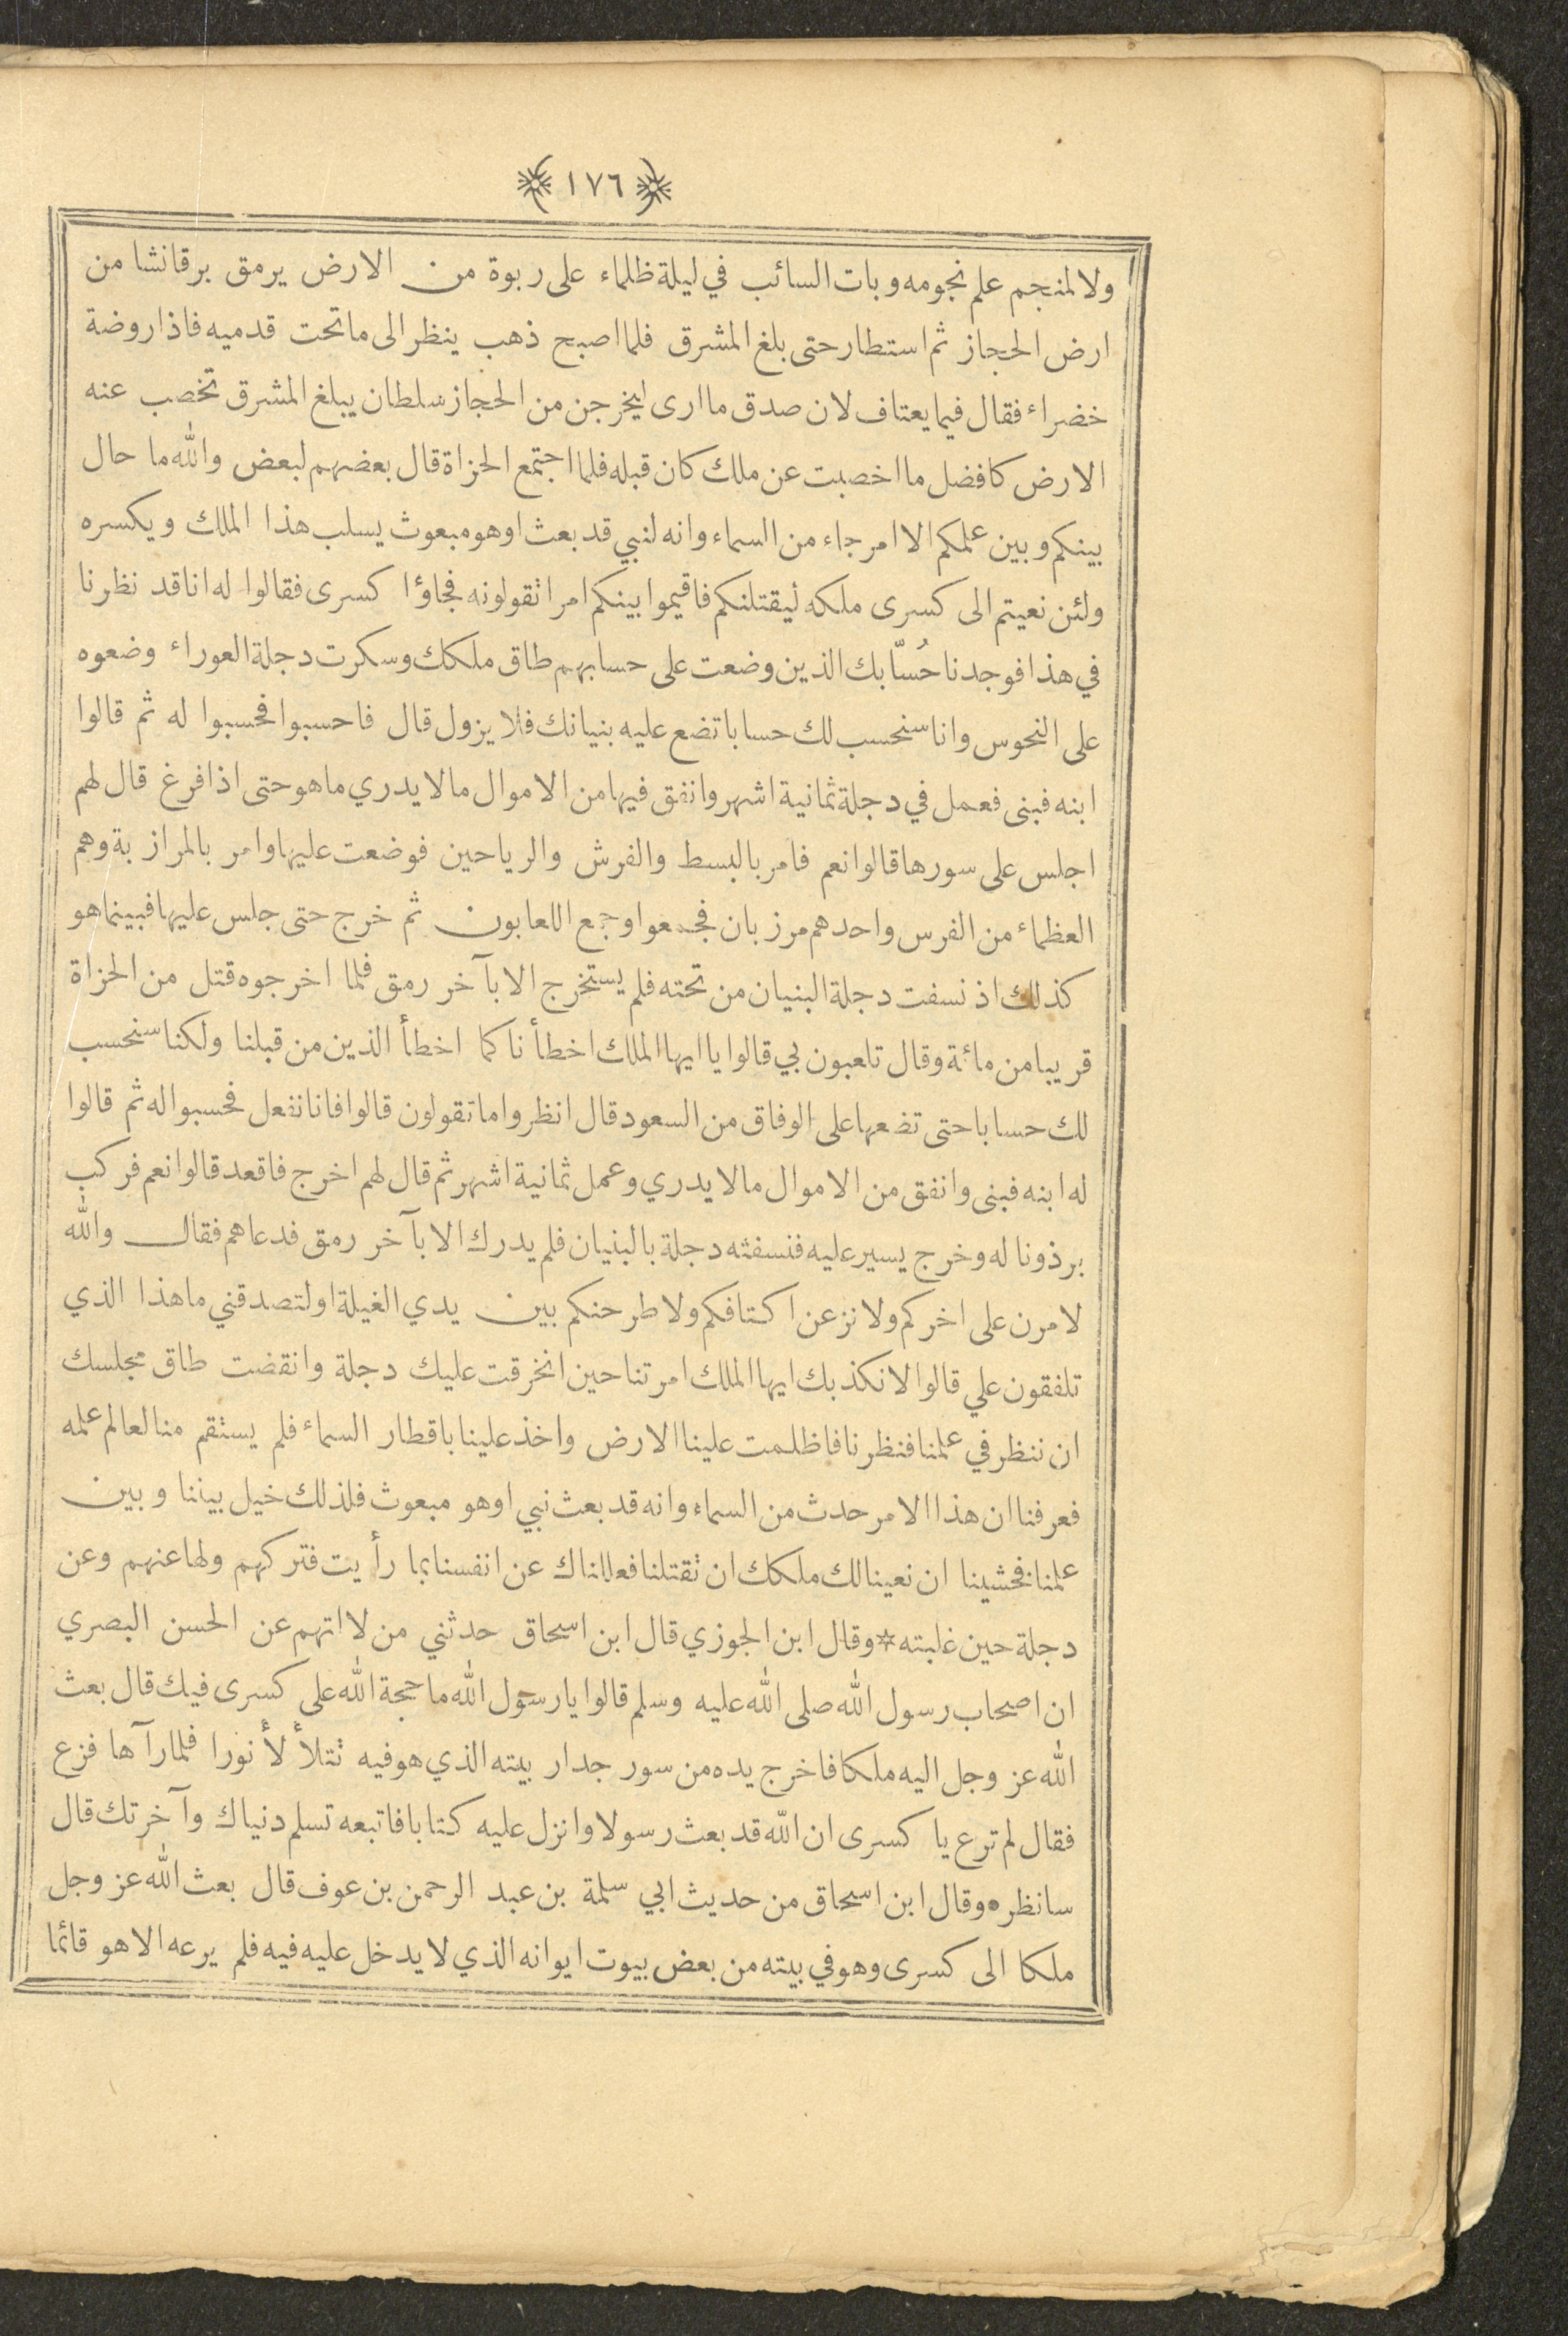 ١٧٦
ولا لمنجم علم نجومه وبات السائب في ليلة ظلماء على ربوة من الارض يرمق برقا نشا من
ارض الحجاز ثم استطار حتى بلغ المشرق فلما اصبح ذهب ينظر الى ما تحت قدميه فاذا روضة
خضراء فقال فيما يعتاف لان صدق ما ارى ليخرجن من الحجاز سلطان يبلغ المشرق تخصب عنه
الارض كافضل ما اخصبت عن ملك كان قبله فلما اجتمع الحزاة قال بعضهم لبعض والله ما حال
بينكم وبين علمكم الا امر جاء من السماء وانه لنبي قد بعث او هو مبعوث يسلب هذا الملك ويكسره
ولئن نعيتم الى كسرى ملكه ليقتلنكم فاقيموا بينكم امرا تقولونه فجاؤا كسرى فقالوا له انا قد نظرنا
في هذا فوجدنا حُسّابك الذين وضعت على حسابهم طاق ملكك وسكرت دجلة العوراء وضعوه
على النحوس وانا سنحسب لك حسابا تضع عليه بنيانك فلا يزول قال فاحسبوا فحسبوا له ثم قالوا
ابنه فبنى فعمل في دجلة ثمانية اشهر وانفق فيها من الاموال مالا يدري ما هو حتى اذا فرغ قال لهم
اجلس على سورها قالوا نعم فامر بالبسط والفرش والرياحين فوضعت عليها وامر بالمرازبة وهم
العظماء من الفرس واحدهم مرزبان فجمعوا وجمع اللعابون ثم خرج حتى جلس عليها فبينما هو
كذلك اذ نسفت دجلة البنيان من تحته فلم يستخرج الا بآخر رمق فلما اخرجوه قتل من الحزاة
قريبا من مائة وقال تلعبون بي قالوا يا ايها الملك اخطأنا كما اخطأ الذين من قبلنا ولكنا سنحسب
لك حسابا حتى تضعها على الوفاق من السعود قال انظروا ما تقولون قالوا فانا نفعل فحسبوا له ثم قالوا
له ابنه فبنى وانفق من الاموال مالا يدري وعمل ثمانية اشهر ثم قال لهم اخرج فاقعد قالوا نعم فركب
برذونا له وخرج يسير عليه فنسفته دجلة بالبنيان فلم يدرك الا بآخر رمق فدعاهم فقال والله
لامرن على اخركم ولانزعن اكتافكم ولاطرحنكم بين يدي الغيلة او لتصدقني ما هذا الذي
تلفقون علي قالوا لا نكذبك ايها الملك امرتنا حين انخرقت عليك دجلة وانقضت طاق مجلسك
ان ننظر في علمنا فنظرنا فاظلمت علينا الارض واخذ علينا باقطار السماء فلم يستقم منا لعالم علمه
فعرفنا ان هذا الامر حدث من السماء وانه قد بعث نبي او هو مبعوث فلذلك خيل بيننا وبين
علمنا فخشينا ان نعينا لك ملكك ان تقتلنا فعللناك عن انفسنا بما رأيت فتركهم ولها عنهم وعن
دجلة حين غلبته * وقال ابن الجوزي قال ابن اسحاق حدثني من لا اتهم عن الحسن البصري
ان اصحاب رسول الله صلى الله عليه وسلم قالوا يا رسول الله ما حجة الله على كسرى فيك قال بعث
الله عز وجل اليه ملكا فاخرج يده من سور جدار بيته الذي هو فيه تتلألأ نورا فلما رآها فزع
فقال لم ترع يا كسرى ان الله قد بعث رسولا وانزل عليه كتابا فاتبعه تسلم دنياك وآخرتك قال
سانظر • وقال ابن اسحاق من حديث ابي سلمة بن عبد الرحمن بن عوف قال بعث الله عز وجل
ملكا الى كسرى وهو في بيته من بعض بيوت ايوانه الذي لا يدخل عليه فيه فلم يرعه الا هو قائما